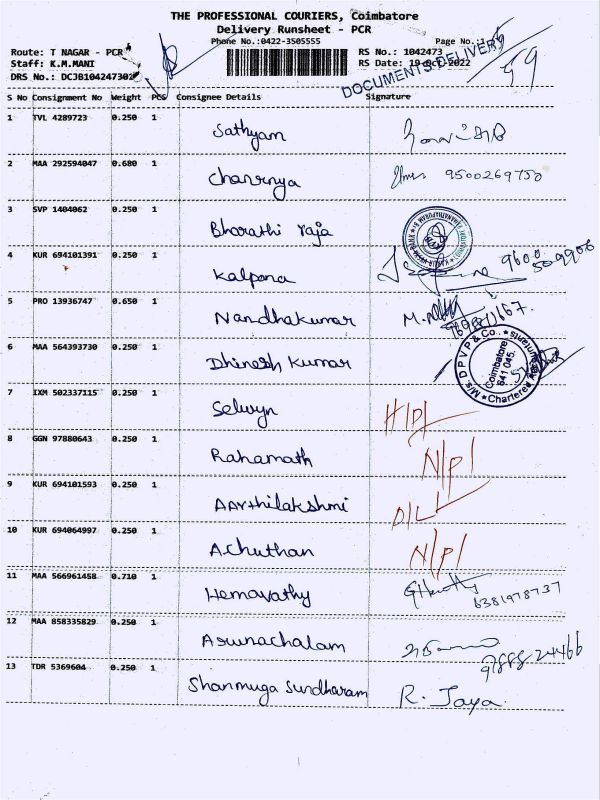 THE PROFESSIONAL COURIERS, Coimbatore
Delivery Runsheet - PCR
Phone No.:0422-3505555
Page No.:1
Route: T NAGAR - PCR
RS No.: 1042473
Staff: K.M.MANI
RS Date: 19-Oct-2022
DRS No.: DCJB104247302
DOCUMENTS DELIVERY
59
S No Consignment No Weight PCS Consignee Details Signature
1 TVL 4289723 0.250 1 Sathyam
2 MAA 292594047 0.680 1 Charrnya 9500269750
3 SVP 1404062 0.250 1 Bharathi raja
4 KUR 694101391 0.250 1 Kalpana 9600 509906
5 PRO 13936747 0.650 1 Nandhakumar M.
6 MAA 564393730 0.250 1 Dhinesh Kumar
M/s. D P V P & Co., Chartered Accountants
Coimbatore
641 045.
7 IXM 502337115 0.250 1 Selwyn
8 GGN 97880643 0.250 1 Rahamath N/P/
9 KUR 694101593 0.250 1 Aarthilakshmi D/L
10 KUR 694064997 0.250 1 Achuthan N/P/
11 MAA 566961458 0.710 1 Hemavathy 6381978737
12 MAA 858335829 0.250 1 Arunachalam
13 TDR 5369604 0.250 1 Shanmuga Sundharam R. Jaya.